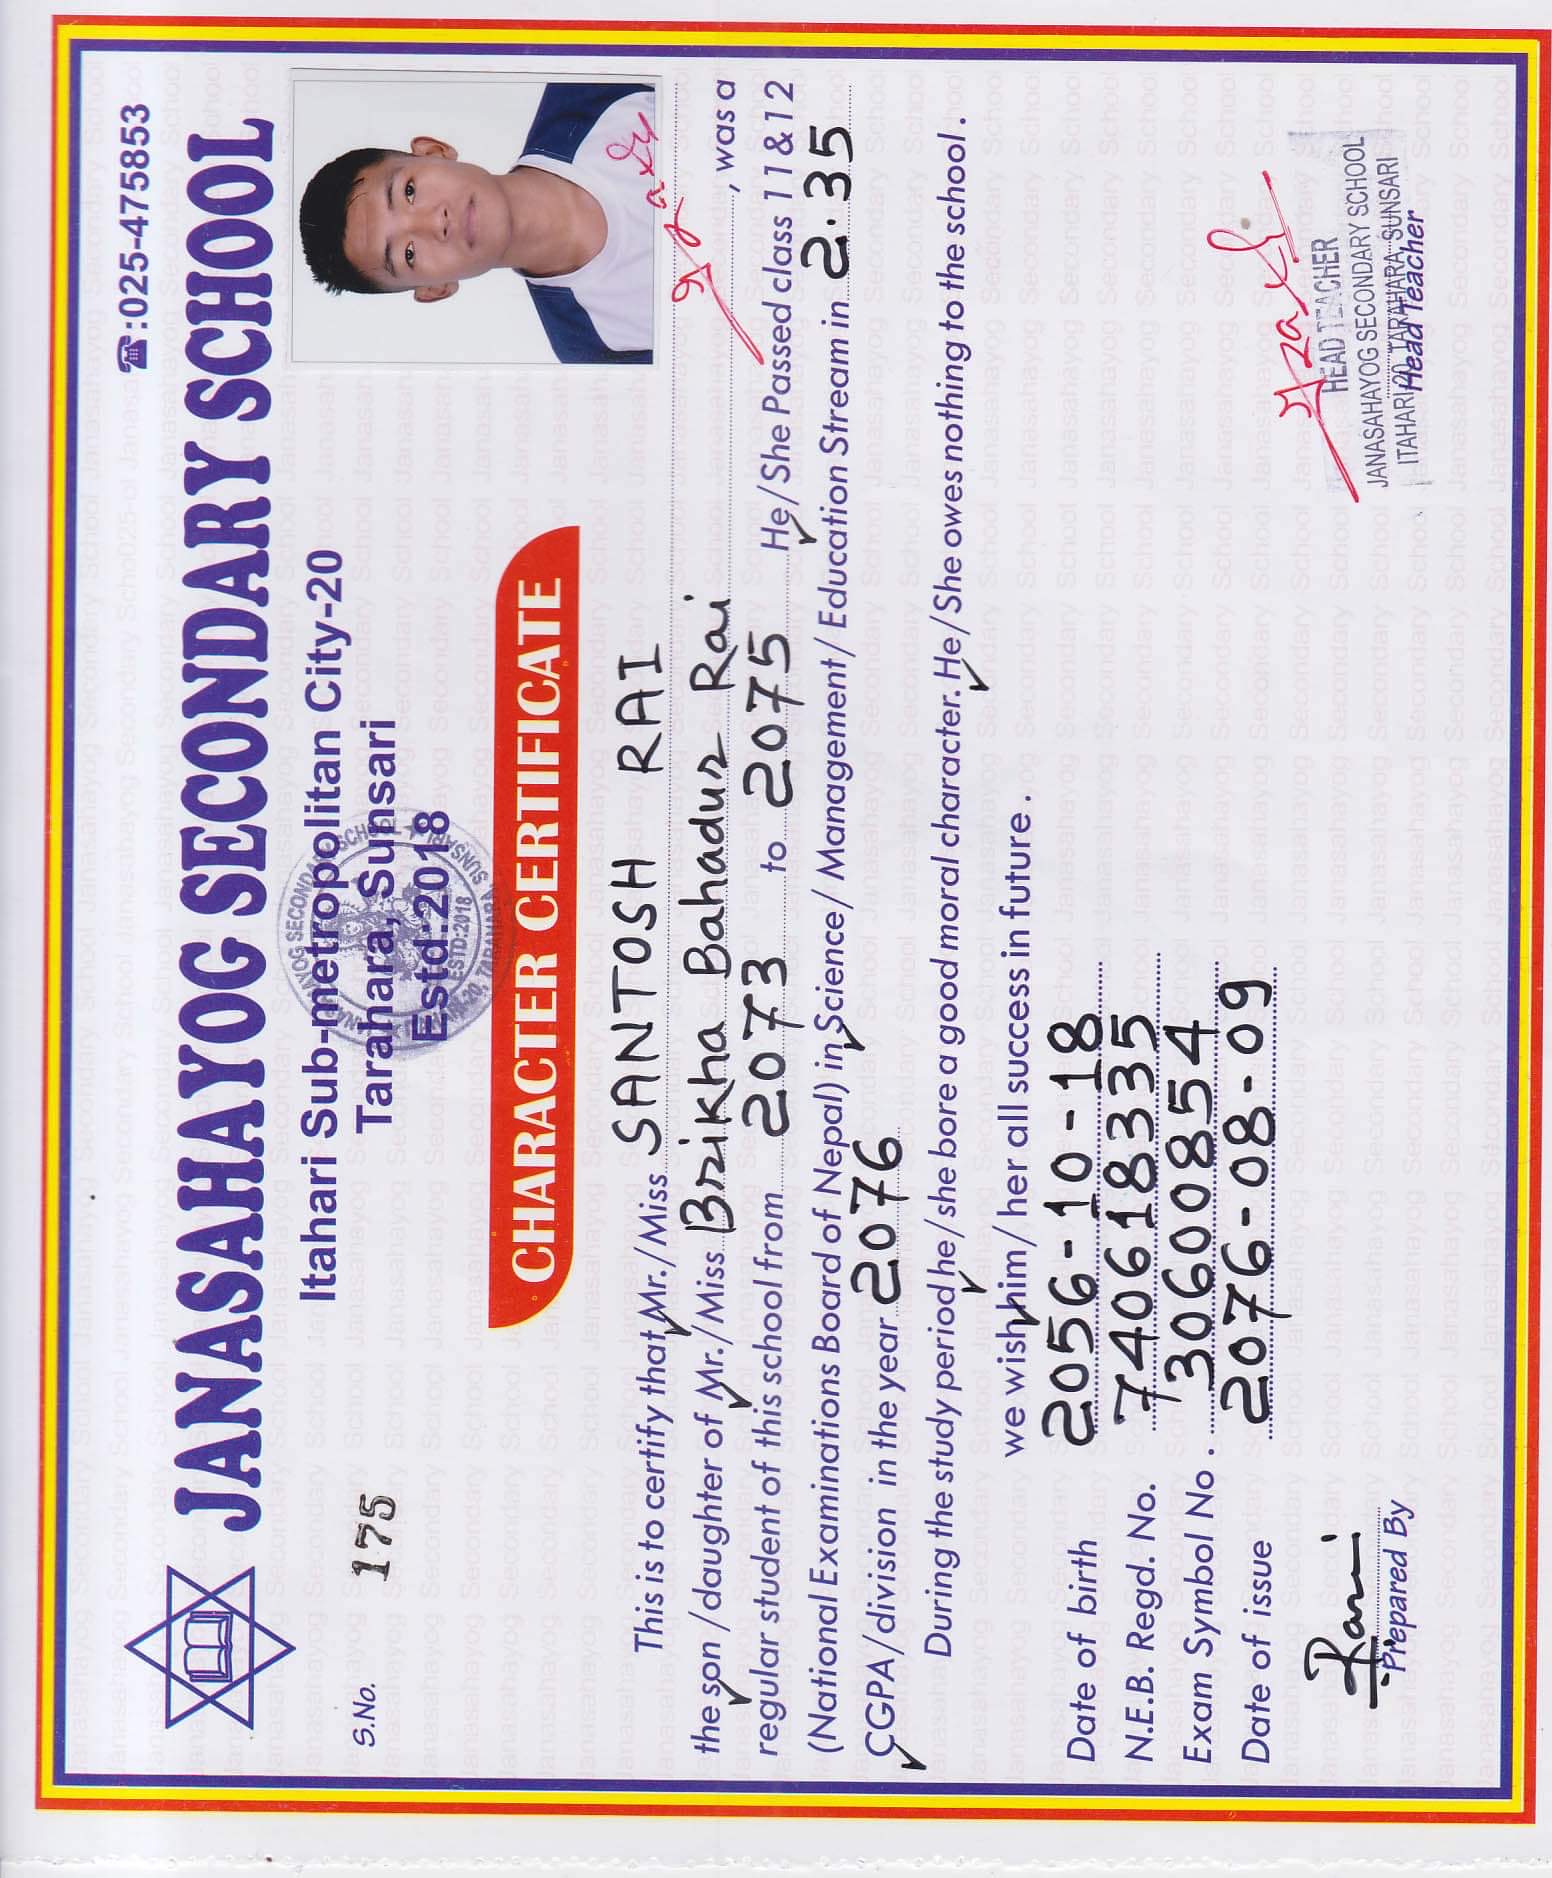 ☎:025-475853
JANASAHAYOG SECONDARY SCHOOL
Itahari Sub-metropolitan City-20
Tarahara, Sunsari
Estd:2018
S.No. 175
CHARACTER CERTIFICATE
This is to certify that Mr./Miss SANTOSH RAI
the son / daughter of Mr./Miss Brikha Bahadur Rai, was a
regular student of this school from 2073 to 2075 He/She Passed class 11 & 12
(National Examinations Board of Nepal) in Science/ Management/ Education Stream in 2.35
CGPA/division in the year 2076
During the study period he/she bore a good moral character. He/She owes nothing to the school.
we wish him/ her all success in future.
Date of birth 2056-10-18
N.E.B. Regd. No. 740618335
Exam Symbol No. 30600854
Date of issue 2076-08-09
Prepared By
HEAD TEACHER
JANASAHAYOG SECONDARY SCHOOL
ITAHARI-20 TARAHARA, SUNSARI
Head Teacher